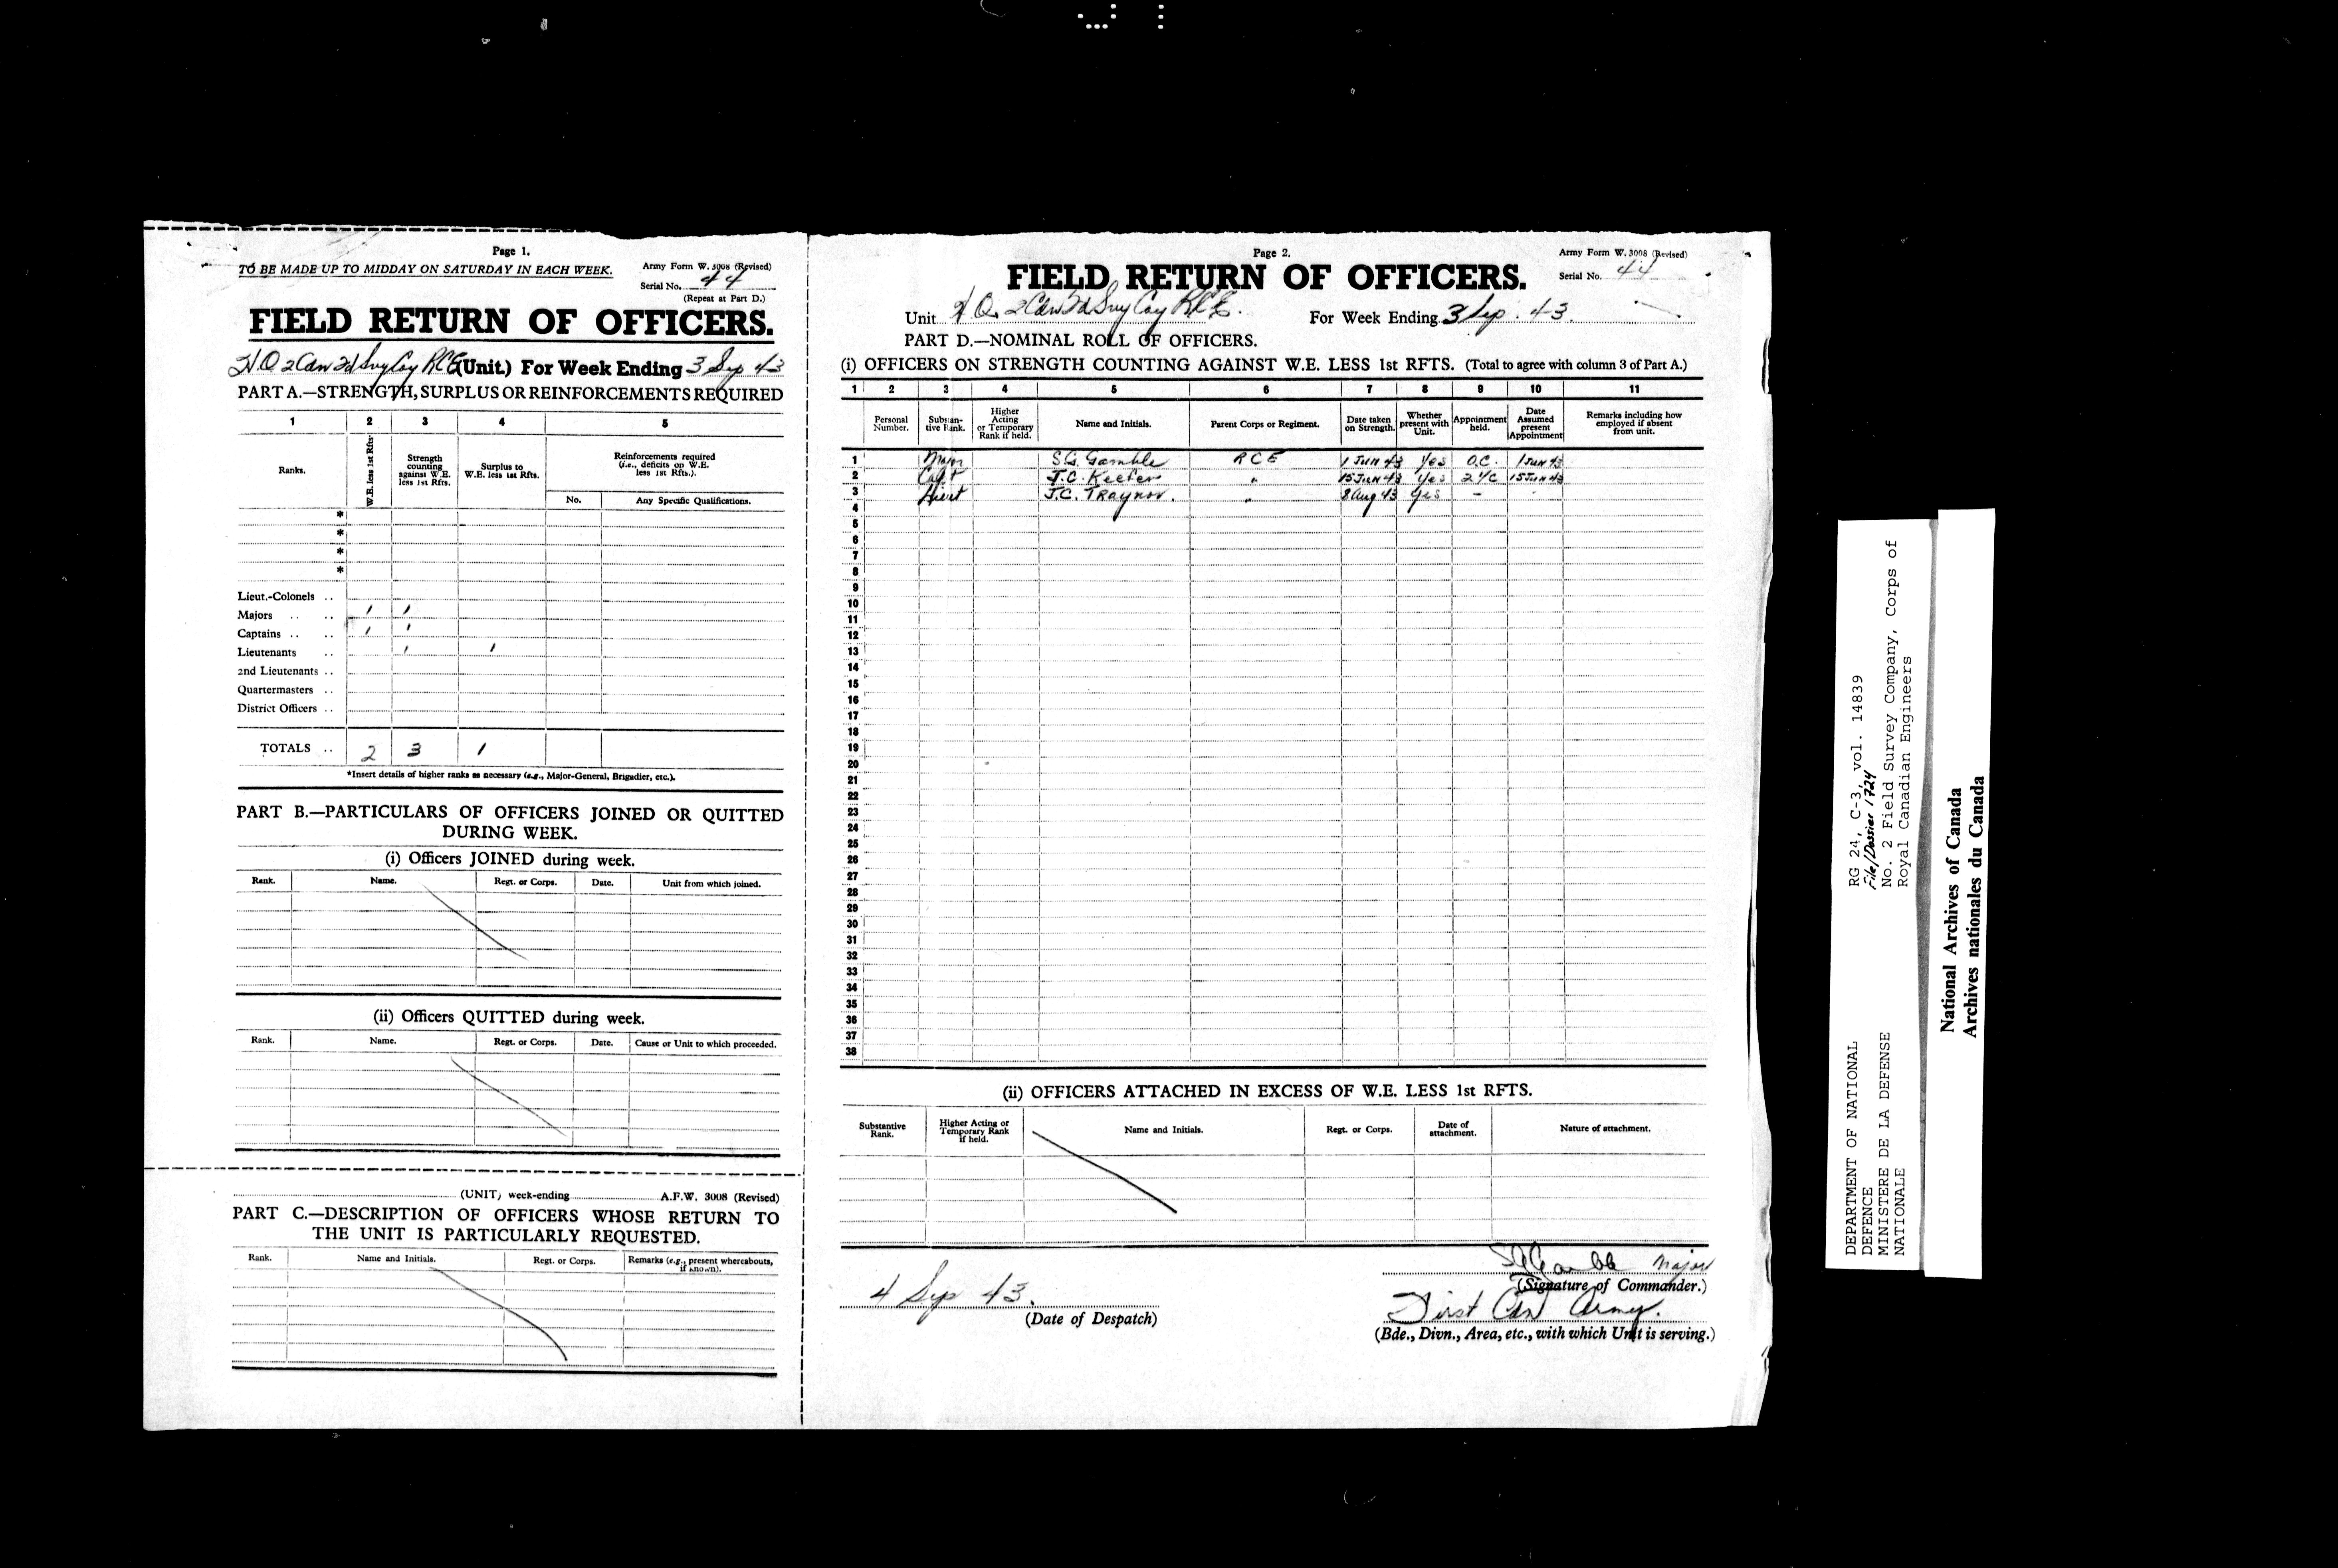 Page 1.
TO BE MADE UP TO MIDDAY ON SATURDAY IN EACH WEEK.
Army Form W. 3008 (Revised)
Serial No. 44
(Repeat at Part D.)
FIELD RETURN OF OFFICERS.
H.Q 2 Cdn Fd Svy Coy RCE (Unit.) For Week Ending 3 Sep 43
PART A.—STRENGTH, SURPLUS OR REINFORCEMENTS REQUIRED
1 2 3 4 5
Ranks.
W.E. less 1st Rfts.
Strength counting against W.E. less 1st Rfts.
Surplus to W.E. less 1st Rfts.
Reinforcements required (i.e., deficits on W.E. less 1st Rfts.).
No. Any Specific Qualifications.
*
*
*
*
Lieut.-Colonels ..
Majors .. .. 1 1
Captains .. .. 1 1
Lieutenants .. 1 1
2nd Lieutenants ..
Quartermasters ..
District Officers ..
TOTALS .. 2 3 1
*Insert details of higher ranks as necessary (e.g., Major-General, Brigadier, etc.).
PART B.—PARTICULARS OF OFFICERS JOINED OR QUITTED
DURING WEEK.
(i) Officers JOINED during week.
Rank. Name. Regt. or Corps. Date. Unit from which joined.
(ii) Officers QUITTED during week.
Rank. Name. Regt. or Corps. Date. Cause or Unit to which proceeded.
(UNIT) week-ending A.F.W. 3008 (Revised)
PART C.—DESCRIPTION OF OFFICERS WHOSE RETURN TO
THE UNIT IS PARTICULARLY REQUESTED.
Rank. Name and Initials. Regt. or Corps. Remarks (e.g., present whereabouts, if known).
Page 2.
Army Form W. 3008 (Revised)
Serial No. 44
FIELD RETURN OF OFFICERS.
Unit H.Q. 2 Cdn Fd Svy Coy RCE. For Week Ending 3 Sep. 43.
PART D.—NOMINAL ROLL OF OFFICERS.
(i) OFFICERS ON STRENGTH COUNTING AGAINST W.E. LESS 1st RFTS. (Total to agree with column 3 of Part A.)
1 2 3 4 5 6 7 8 9 10 11
Personal Number.
Substantive Rank.
Higher Acting or Temporary Rank if held.
Name and Initials.
Parent Corps or Regiment.
Date taken on Strength.
Whether present with Unit.
Appointment held.
Date Assumed present Appointment
Remarks including how employed if absent from unit.
1 Major S.G. Gamble RCE 1 Jun 43 Yes O.C. 1 Jun 43
2 Capt T.C. Keefer " 15 Jun 43 Yes 2 I/C 15 Jun 43
3 Lieut J.C. Traynor. " 8 Aug 43 Yes - -
4
5
6
7
8
9
10
11
12
13
14
15
16
17
18
19
20
21
22
23
24
25
26
27
28
29
30
31
32
33
34
35
36
37
38
(ii) OFFICERS ATTACHED IN EXCESS OF W.E. LESS 1st RFTS.
Substantive Rank. Higher Acting or Temporary Rank if held. Name and Initials. Regt. or Corps. Date of attachment. Nature of attachment.
SGGamble Major
(Signature of Commander.)
4 Sep 43.
(Date of Despatch)
First Cdn Army.
(Bde., Divn., Area, etc., with which Unit is serving.)
DEPARTMENT OF NATIONAL
DEFENCE
MINISTERE DE LA DEFENSE
NATIONALE
RG 24, C-3, vol. 14839
File/Dossier 1724
No. 2 Field Survey Company, Corps of
Royal Canadian Engineers
National Archives of Canada
Archives nationales du Canada